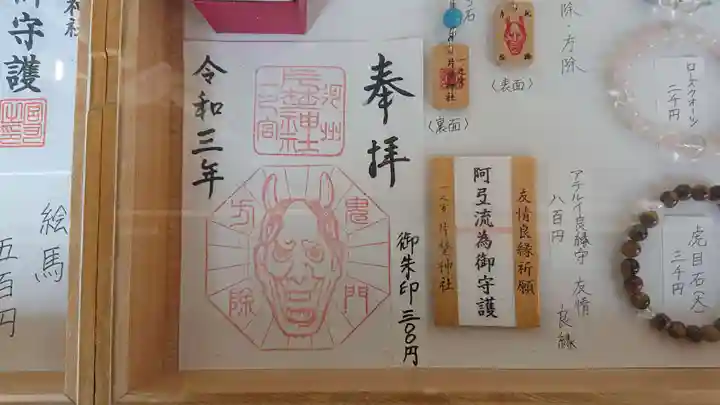 神社
御守護
絵馬
五百円
奉拝
令和三年
河州
片埜神社
一之宮
鬼門
方除
御朱印三〇〇円
一之宮
片埜神社
(裏面)
(表面)
除・方除
友情良縁祈願
阿弖流為御守護
一之宮片埜神社
アテルイ良縁守 友情
良縁
八百円
ローズクォーツ
二千円
虎目石(大)
三千円